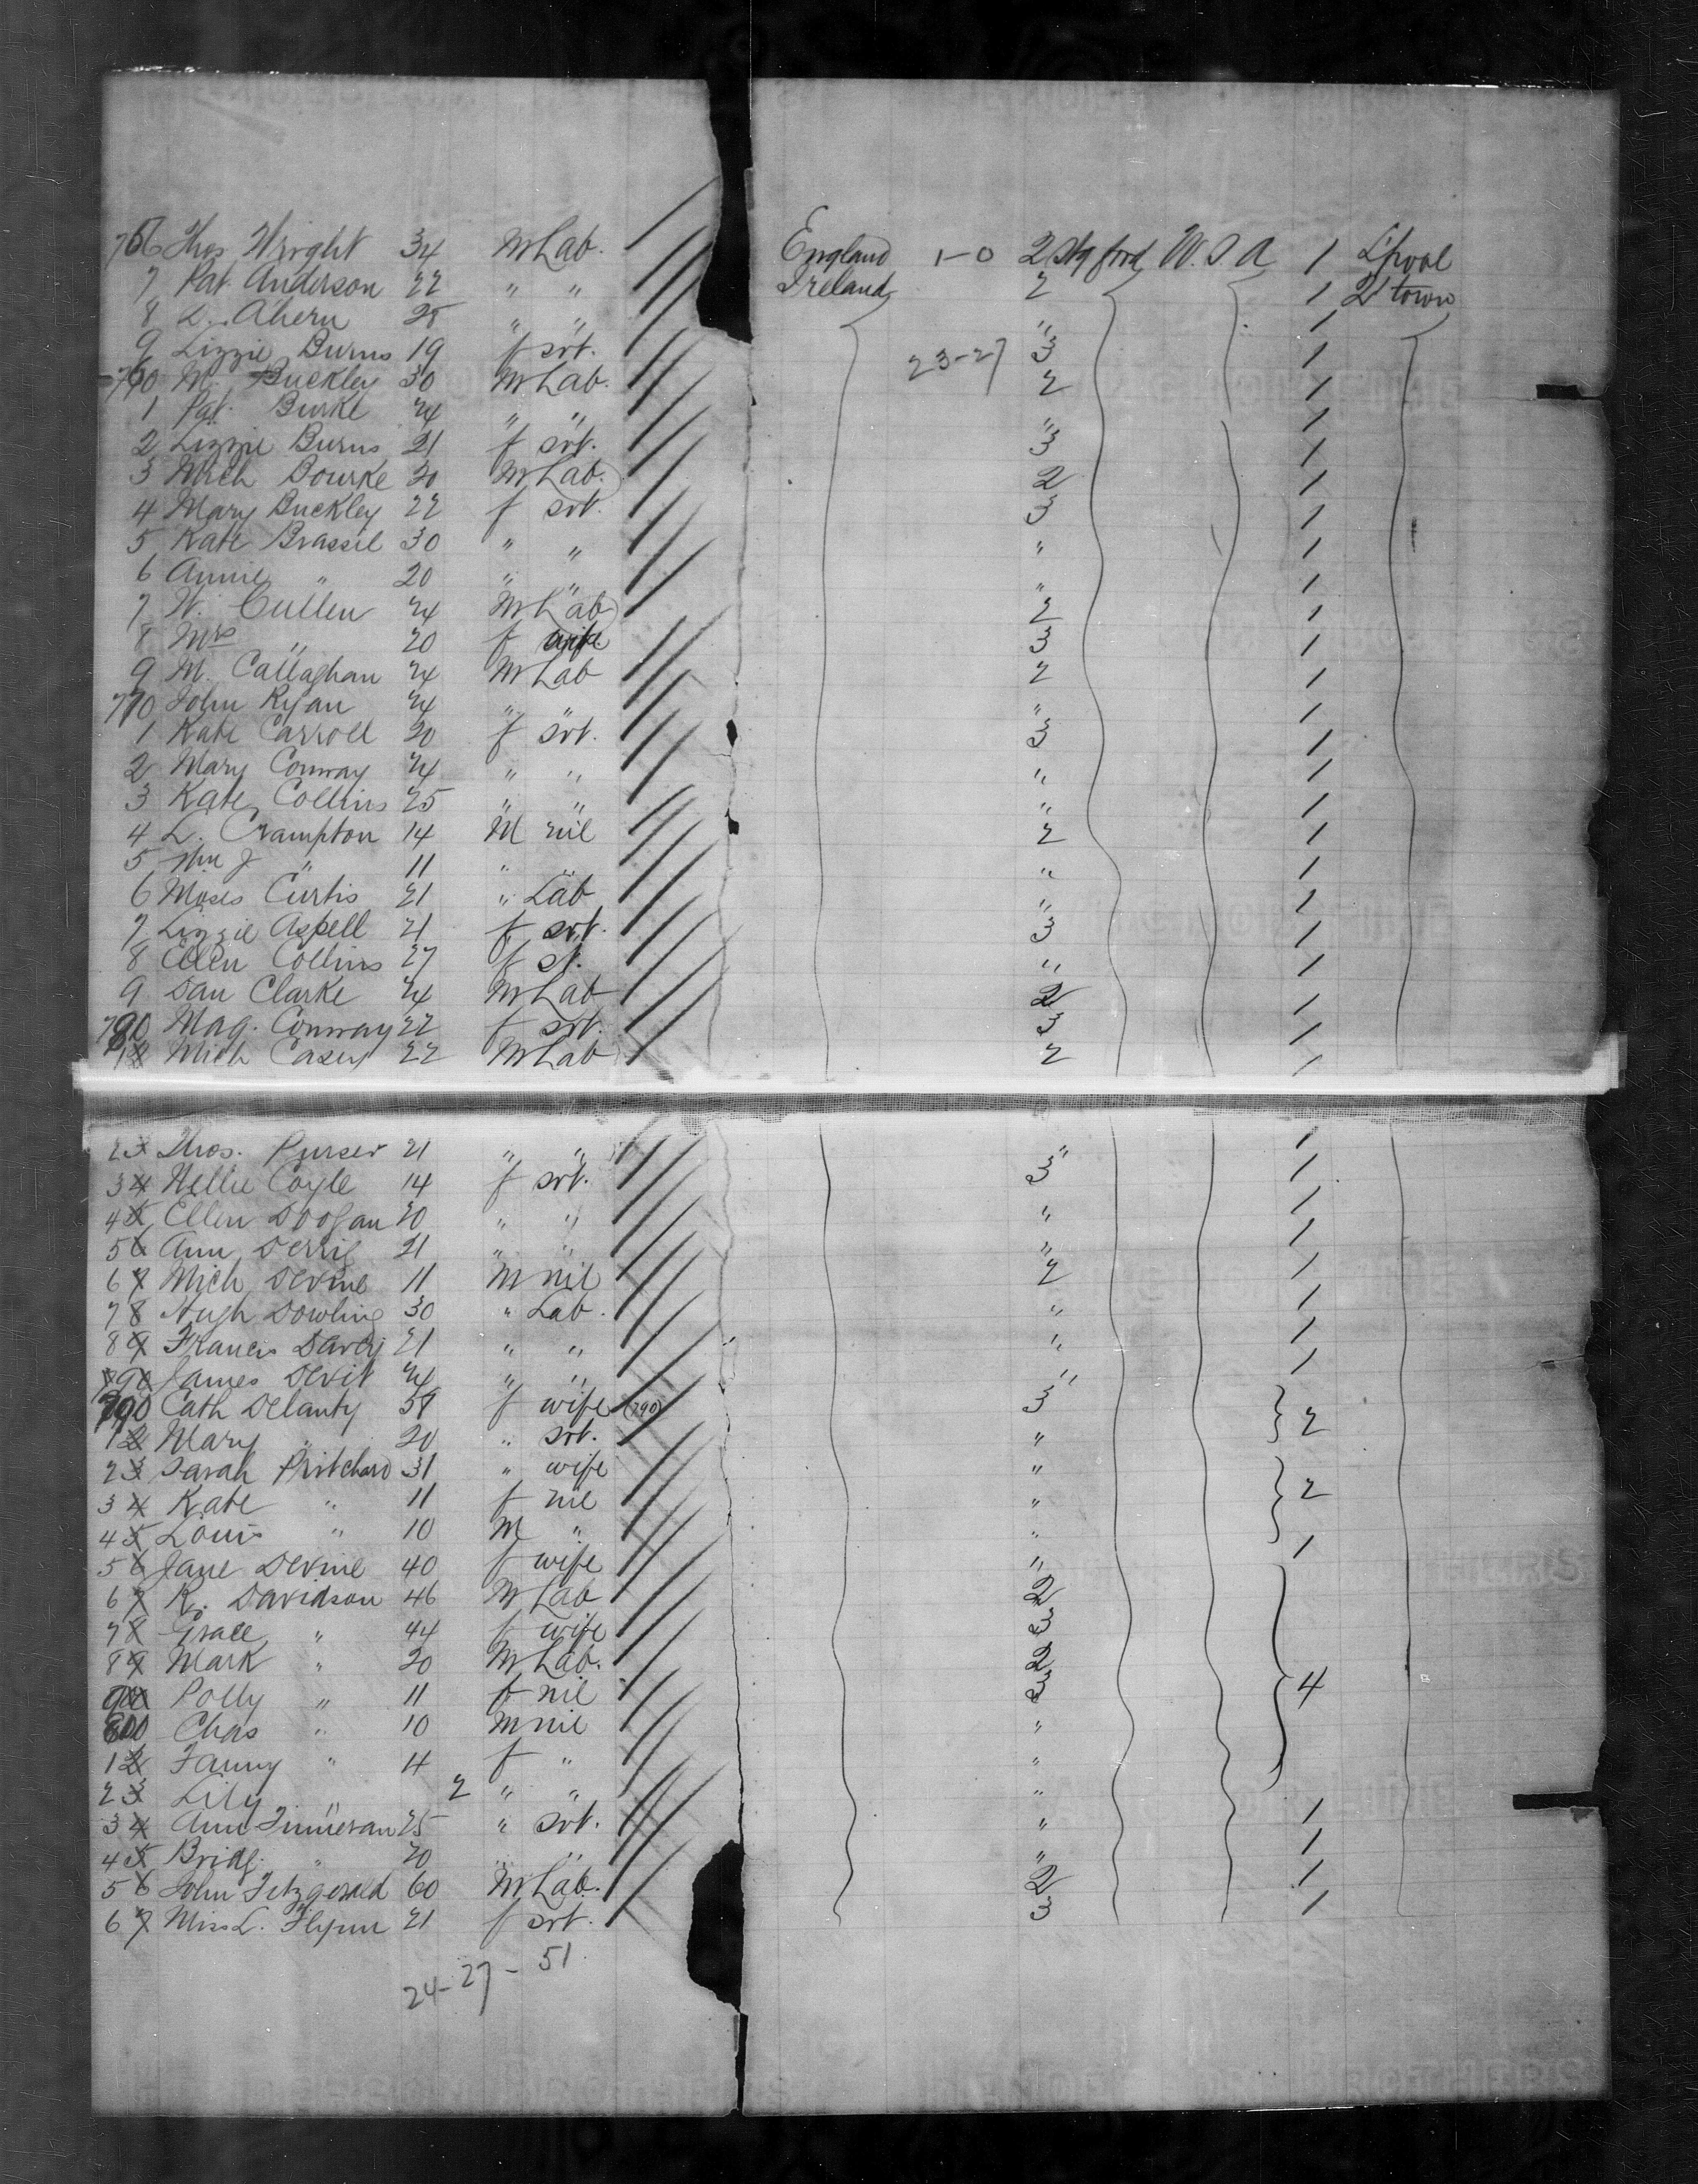 756 Thos Wright 34 M Lab. England 1-0 2 Stg ford U.S.A 1 L'pool
7 Pat Anderson 22 " " Ireland 2 1 Q'town
8 D. Ahern 28 " " " 1
9 Lizzie Burns 19 f svt. 23-27 3 1
760 M. Buckley 30 M Lab. 2 1
1 Pat. Burke 24 " " " 1
2 Lizzie Burns 21 f svt. 3 1
3 Mich Bourke 20 M Lab. 2 1
4 Mary Buckley 22 f svt. 3 1
5 Kate Brassil 30 " " " 1
6 Annie " 20 " " " 1
7 W. Cullen 24 M Lab 2 1
8 Mrs " 20 f wife 3 1
9 M. Callaghan 24 M Lab 2 1
770 John Ryan 24 " " " 1
1 Kate Carroll 20 f svt. 3 1
2 Mary Conway 24 " " " 1
3 Kate Collins 25 " " " 1
4 L. Crampton 14 M nil 2 1
5 Wm J " 11 " " " 1
6 Moses Curtis 21 " Lab " 1
7 Lizzie Aspell 21 f svt. 3 1
8 Ellen Collins 27 f st. " 1
9 Dan Clarke 24 M Lab 2 1
780 Mag. Conway 22 f svt. 3 1
1 Mich Casey 22 M Lab 2 1
2 Thos. Purser 21 " " " 1
3 Nellie Coyle 14 f svt. 3 1
4 Ellen Doogan 20 " " " 1
5 Ann Derrig 21 " " " 1
6 Mich Devine 11 M nil 2 1
7 Hugh Dowling 30 " Lab. " 1
8 Francis Darcy 21 " " " 1
9 James Devit 24 " " " 1
790 Cath Delanty 59 f wife (790) 3 2
1 Mary " 20 " svt. "
2 Sarah Pritchard 31 " wife " 2
3 Kate " 11 f nil "
4 Louis " 10 M " "
5 Jane Devine 40 f wife " 1
6 R. Davidson 46 M Lab 2
7 Grace " 44 f wife 3
8 Mark " 20 M Lab. 2
9 Polly " 11 f nil 3 4
800 Chas " 10 M nil "
1 Fanny " 4 f " "
2 Lily " 2 " " "
3 Ann Finneran 25 " svt. " 1
4 Bridg. " 20 " " " 1
5 John Fitzgerald 60 M Lab. 2 1
6 Miss L. Flynn 21 f svt. 3 1
24-27-51